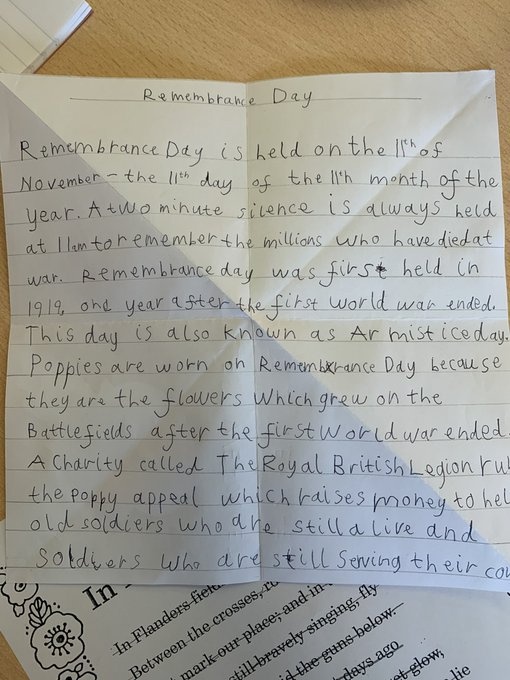 Remembrance Day
Remembrance Day is held on the 11th of
November - the 11th day of the 11th month of the
year. A two minute silence is always held
at 11am to remember the millions who have died at
war. Remembrance day was first held in
1919, one year after the first world war ended.
This day is also known as Armistice day.
Poppies are worn on Remembrance Day because
they are the flowers which grew on the
Battlefields after the first World war ended.
A Charity called The Royal British Legion ru
the poppy appeal which raises money to hel
old soldiers who are still alive and
soldiers who are still serving their cou
In
In Flanders field
Between the crosses, ro
mark our place; and in
still bravely singing, fly
the guns below.
days ago
glow,
lie